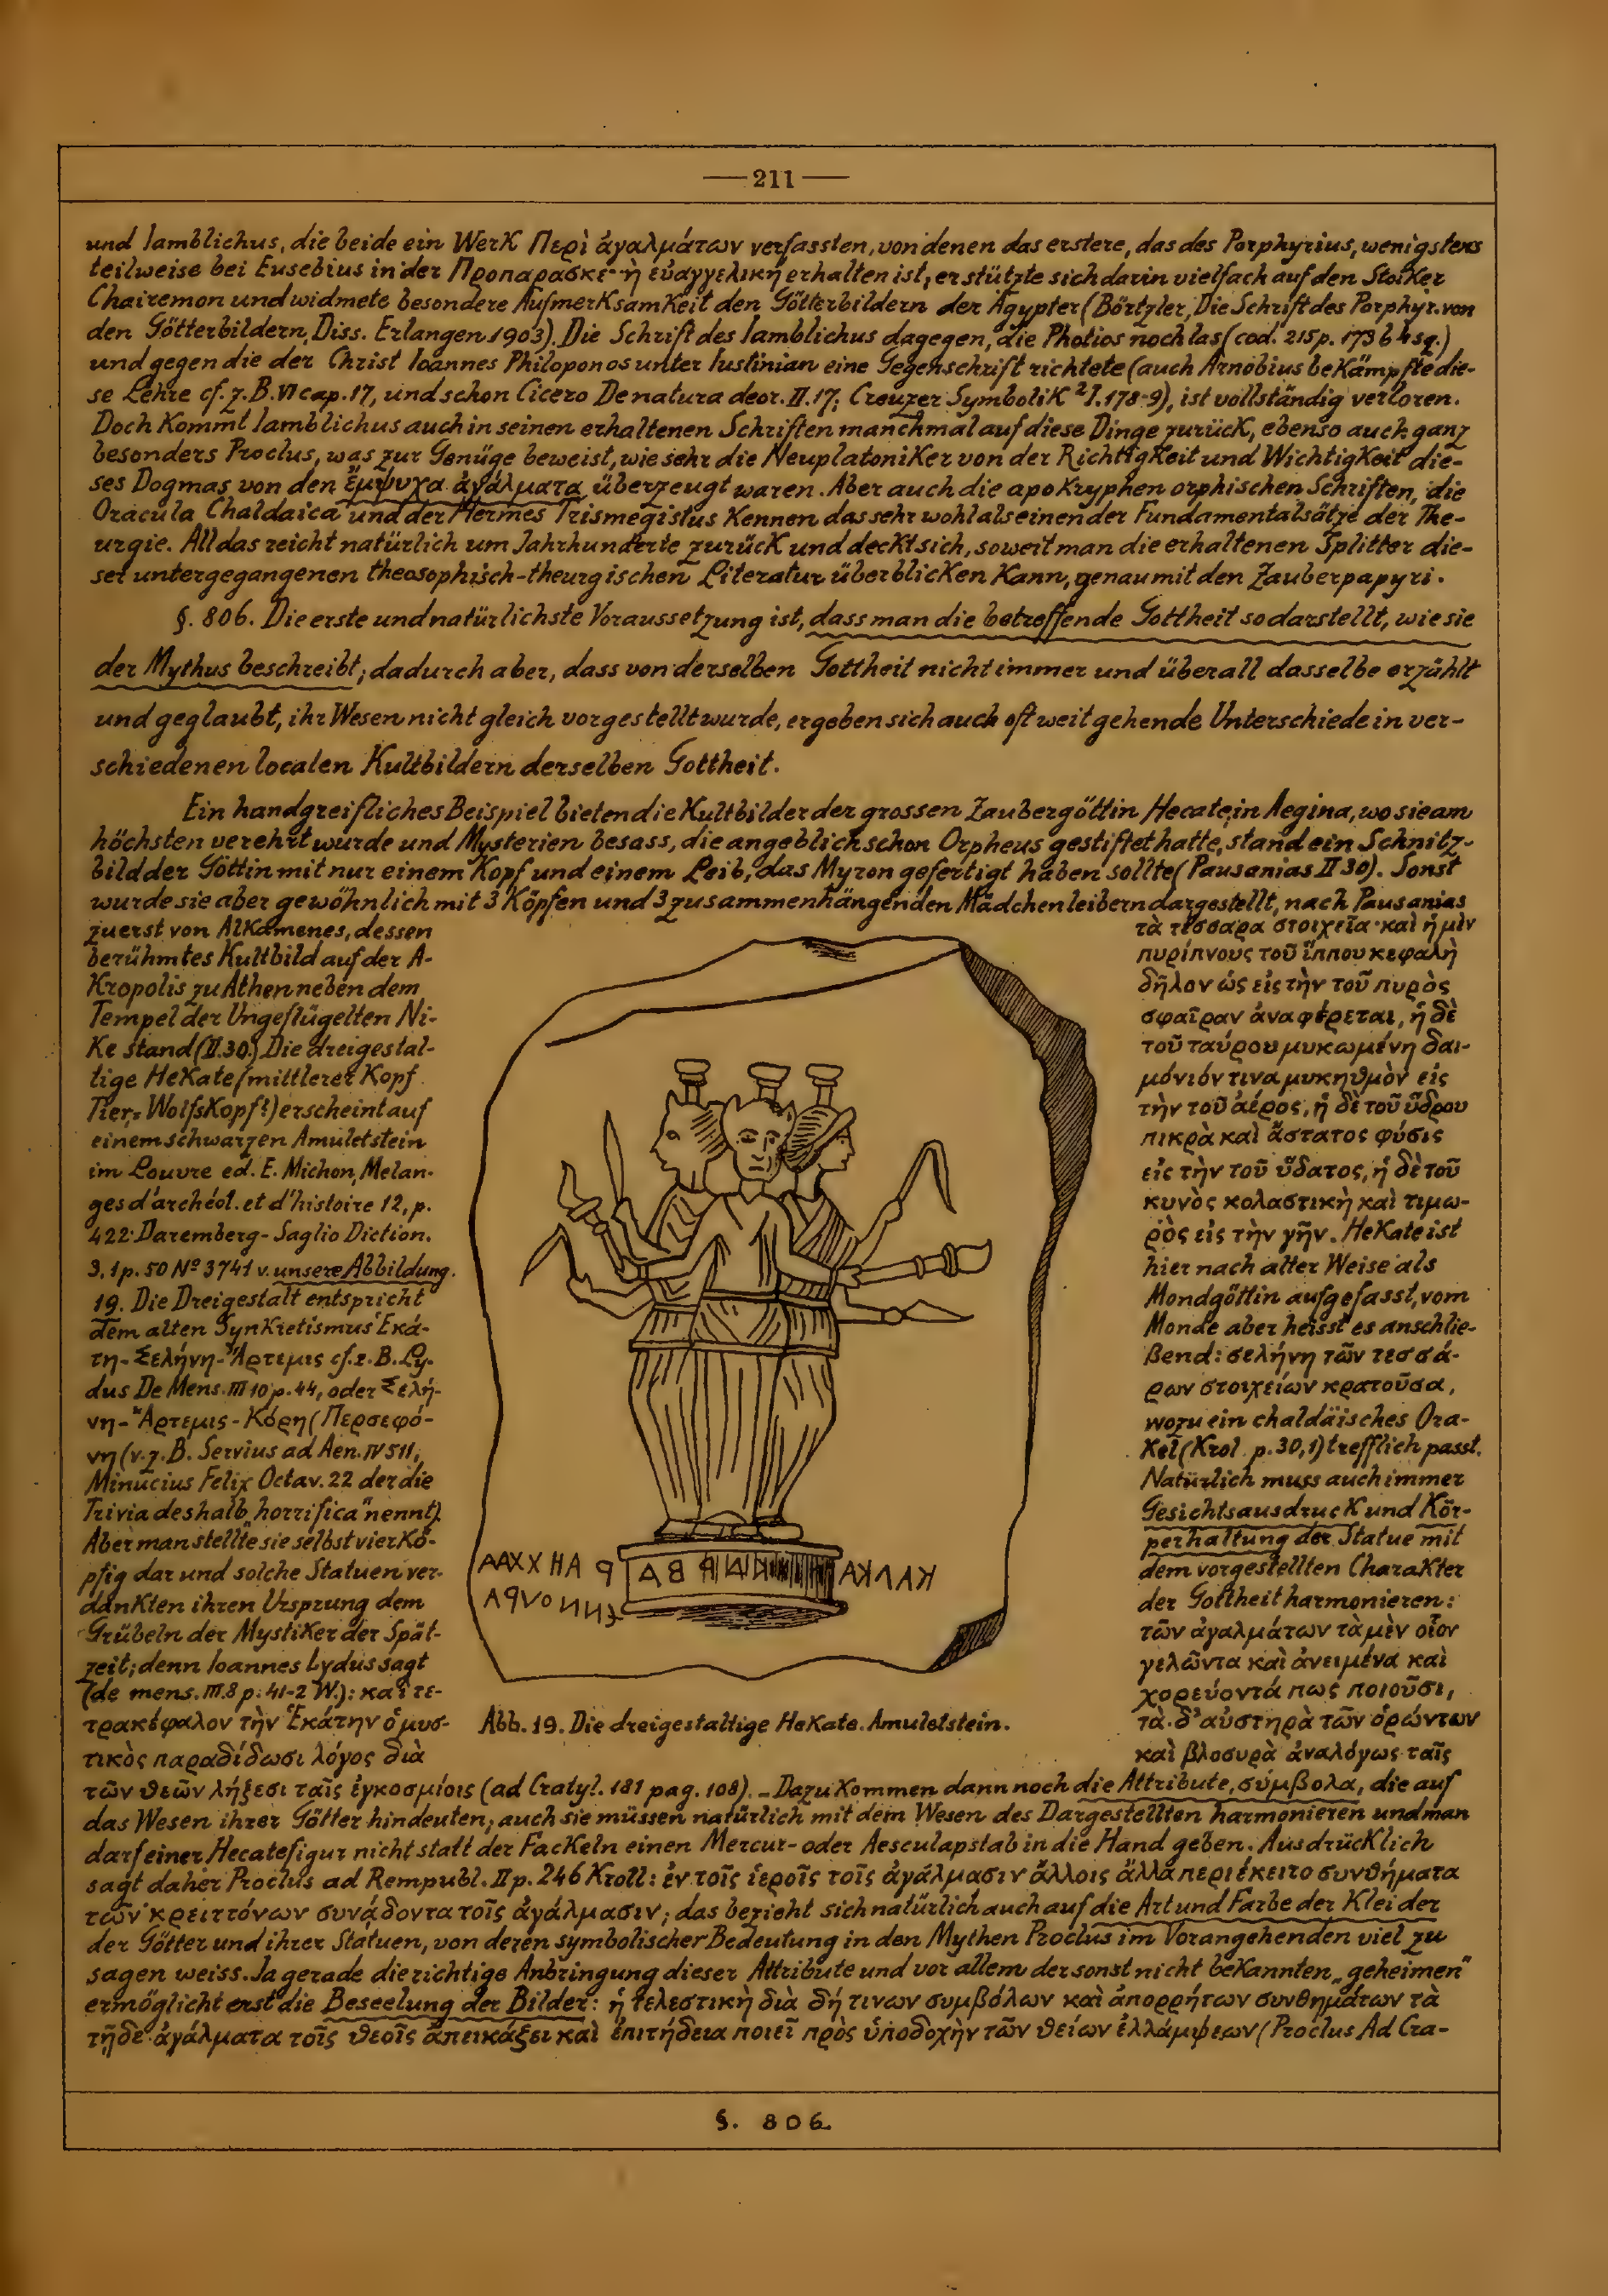 — 211 —
und Iamblichus, die beide ein Werk Περὶ ἀγαλμάτων verfassten, von denen das erstere, das des Porphyrius, wenigstens
teilweise bei Eusebius in der Προπαρασκε··ὴ εὐαγγελικὴ erhalten ist, er stützte sich darin vielfach auf den Stoiker
Chairemon und widmete besondere Aufmerksamkeit den Götterbildern der Ägypter (Börtzler, Die Schrift des Porphyr. von
den Götterbildern, Diss. Erlangen 1903). Die Schrift des Iamblichus dagegen, die Photios noch las (cod. 215 p. 173 b 4 sq.)
und gegen die der Christ Ioannes Philoponos unter Iustinian eine Gegenschrift richtete (auch Arnobius bekämpfte die-
se Lehre cf. z. B. VI cap. 17, und schon Cicero De natura deor. II. 17; Creuzer Symbolik ²I. 178-9), ist vollständig verloren.
Doch kommt Iamblichus auch in seinen erhaltenen Schriften manchmal auf diese Dinge zurück, ebenso auch ganz
besonders Proclus, was zur Genüge beweist, wie sehr die Neuplatoniker von der Richtigkeit und Wichtigkeit die-
ses Dogmas von den ἔμψυχα ἀγάλματα überzeugt waren. Aber auch die apokryphen orphischen Schriften, die
Oracula Chaldaica und der Hermes Trismegistus kennen das sehr wohl als einen der Fundamentalsätze der The-
urgie. All das reicht natürlich um Jahrhunderte zurück und deckt sich, soweit man die erhaltenen Splitter die-
ser untergegangenen theosophisch-theurgischen Literatur überblicken kann, genau mit den Zauberpapyri.
§. 806. Die erste und natürlichste Voraussetzung ist, dass man die betreffende Gottheit so darstellt, wie sie
der Mythus beschreibt; dadurch aber, dass von derselben Gottheit nicht immer und überall dasselbe erzählt
und geglaubt, ihr Wesen nicht gleich vorgestellt wurde, ergeben sich auch oft weit gehende Unterschiede in ver-
schiedenen localen Kultbildern derselben Gottheit.
Ein handgreifliches Beispiel bieten die Kultbilder der grossen Zaubergöttin Hecate; in Aegina, wo sie am
höchsten verehrt wurde und Mysterien besass, die angeblich schon Orpheus gestiftet hatte, stand ein Schnitz-
bild der Göttin mit nur einem Kopf und einem Leib, das Myron gefertigt haben sollte (Pausanias II 30). Sonst
wurde sie aber gewöhnlich mit 3 Köpfen und 3 zusammenhängenden Mädchenleibern dargestellt, nach Pausanias
zuerst von Alkamenes, dessen
berühmtes Kultbild auf der A-
kropolis zu Athen neben dem
Tempel der Ungeflügelten Ni-
ke stand (II. 30.) Die dreigestal-
tige Hekate (mittlerer Kopf
Tier-, Wolfskopf?) erscheint auf
einem schwarzen Amuletstein
im Louvre ed. E. Michon, Melan-
ges d'archéol. et d'histoire 12, p.
422. Daremberg-Saglio Diction.
3, 1 p. 50 Nº 3741 v. unsere Abbildung.
19. Die Dreigestalt entspricht
dem alten Synkretismus Ἑκά-
τη-Σελήνη-Ἄρτεμις cf. z. B. Ly-
dus De Mens. III 10 p. 44, oder Σελή-
νη-Ἄρτεμις-Κόρη (Περσεφό-
νη (v. z. B. Servius ad Aen. IV 511,
Minucius Felix Octav. 22 der die
Trivia deshalb „horrifica" nennt).
Aber man stellte sie selbst vierkö-
pfig dar und solche Statuen ver-
dankten ihren Ursprung dem
Grübeln der Mystiker der Spät-
zeit; denn Ioannes Lydus sagt
(de mens. III. 8 p. 41-2 W.): καὶ τε-
τρακέφαλον τὴν Ἑκάτην ὁ μυσ-
τικὸς παραδίδωσι λόγος διὰ
τὰ τέσσαρα στοιχεῖα· καὶ ἡ μὲν
πυρίπνους τοῦ ἵππου κεφαλὴ
δῆλον ὡς εἰς τὴν τοῦ πυρὸς
σφαῖραν ἀναφέρεται, ἡ δὲ
τοῦ ταύρου μυκωμένη δαι-
μόνιόν τινα μυκηθμὸν εἰς
τὴν τοῦ ἀέρος, ἡ δὲ τοῦ ὕδρου
πικρὰ καὶ ἄστατος φύσις
εἰς τὴν τοῦ ὕδατος, ἡ δὲ τοῦ
κυνὸς κολαστικὴ καὶ τιμω-
ρὸς εἰς τὴν γῆν. Hekate ist
hier nach alter Weise als
Mondgöttin aufgefasst, vom
Monde aber heisst es anschlie-
ßend: σελήνη τῶν τεσσά-
ρων στοιχείων κρατοῦσα,
wozu ein chaldäisches Ora-
kel (Krol. p. 30, 1) trefflich passt.
Natürlich muss auch immer
Gesichtsausdruck und Kör-
perhaltung der Statue mit
dem vorgestellten Charakter
der Gottheit harmonieren:
τῶν ἀγαλμάτων τὰ μὲν οἷον
γελῶντα καὶ ἀνειμένα καὶ
χορεύοντά πως ποιοῦσι,
τὰ δ' αὐστηρὰ τῶν ὁρώντων
καὶ βλοσυρὰ ἀναλόγως ταῖς
Abb. 19. Die dreigestaltige Hekate. Amuletstein.
τῶν θεῶν λήξεσι ταῖς ἐγκοσμίοις (ad Cratyl. 181 pag. 108). – Dazu kommen dann noch die Attribute, σύμβολα, die auf
das Wesen ihrer Götter hindeuten; auch sie müssen natürlich mit dem Wesen des Dargestellten harmonieren und man
darf einer Hecatefigur nicht statt der Fackeln einen Mercur- oder Aesculapstab in die Hand geben. Ausdrücklich
sagt daher Proclus ad Rempubl. II p. 246 Kroll: ἐν τοῖς ἱεροῖς τοῖς ἀγάλμασιν ἄλλοις ἄλλα περιέκειτο συνθήματα
τῶν κρειττόνων συνᾴδοντα τοῖς ἀγάλμασιν; das bezieht sich natürlich auch auf die Art und Farbe der Kleider
der Götter und ihrer Statuen, von deren symbolischer Bedeutung in den Mythen Proclus im Vorangehenden viel zu
sagen weiss. Ja gerade die richtige Anbringung dieser Attribute und vor allem der sonst nicht bekannten „geheimen"
ermöglicht erst die Beseelung der Bilder: ἡ τελεστικὴ διὰ δή τινων συμβόλων καὶ ἀπορρήτων συνθημάτων τὰ
τῇδε ἀγάλματα τοῖς θεοῖς ἀπεικάζει καὶ ἐπιτήδεια ποιεῖ πρὸς ὑποδοχὴν τῶν θείων ἐλλάμψεων (Proclus Ad Cra-
§. 806.